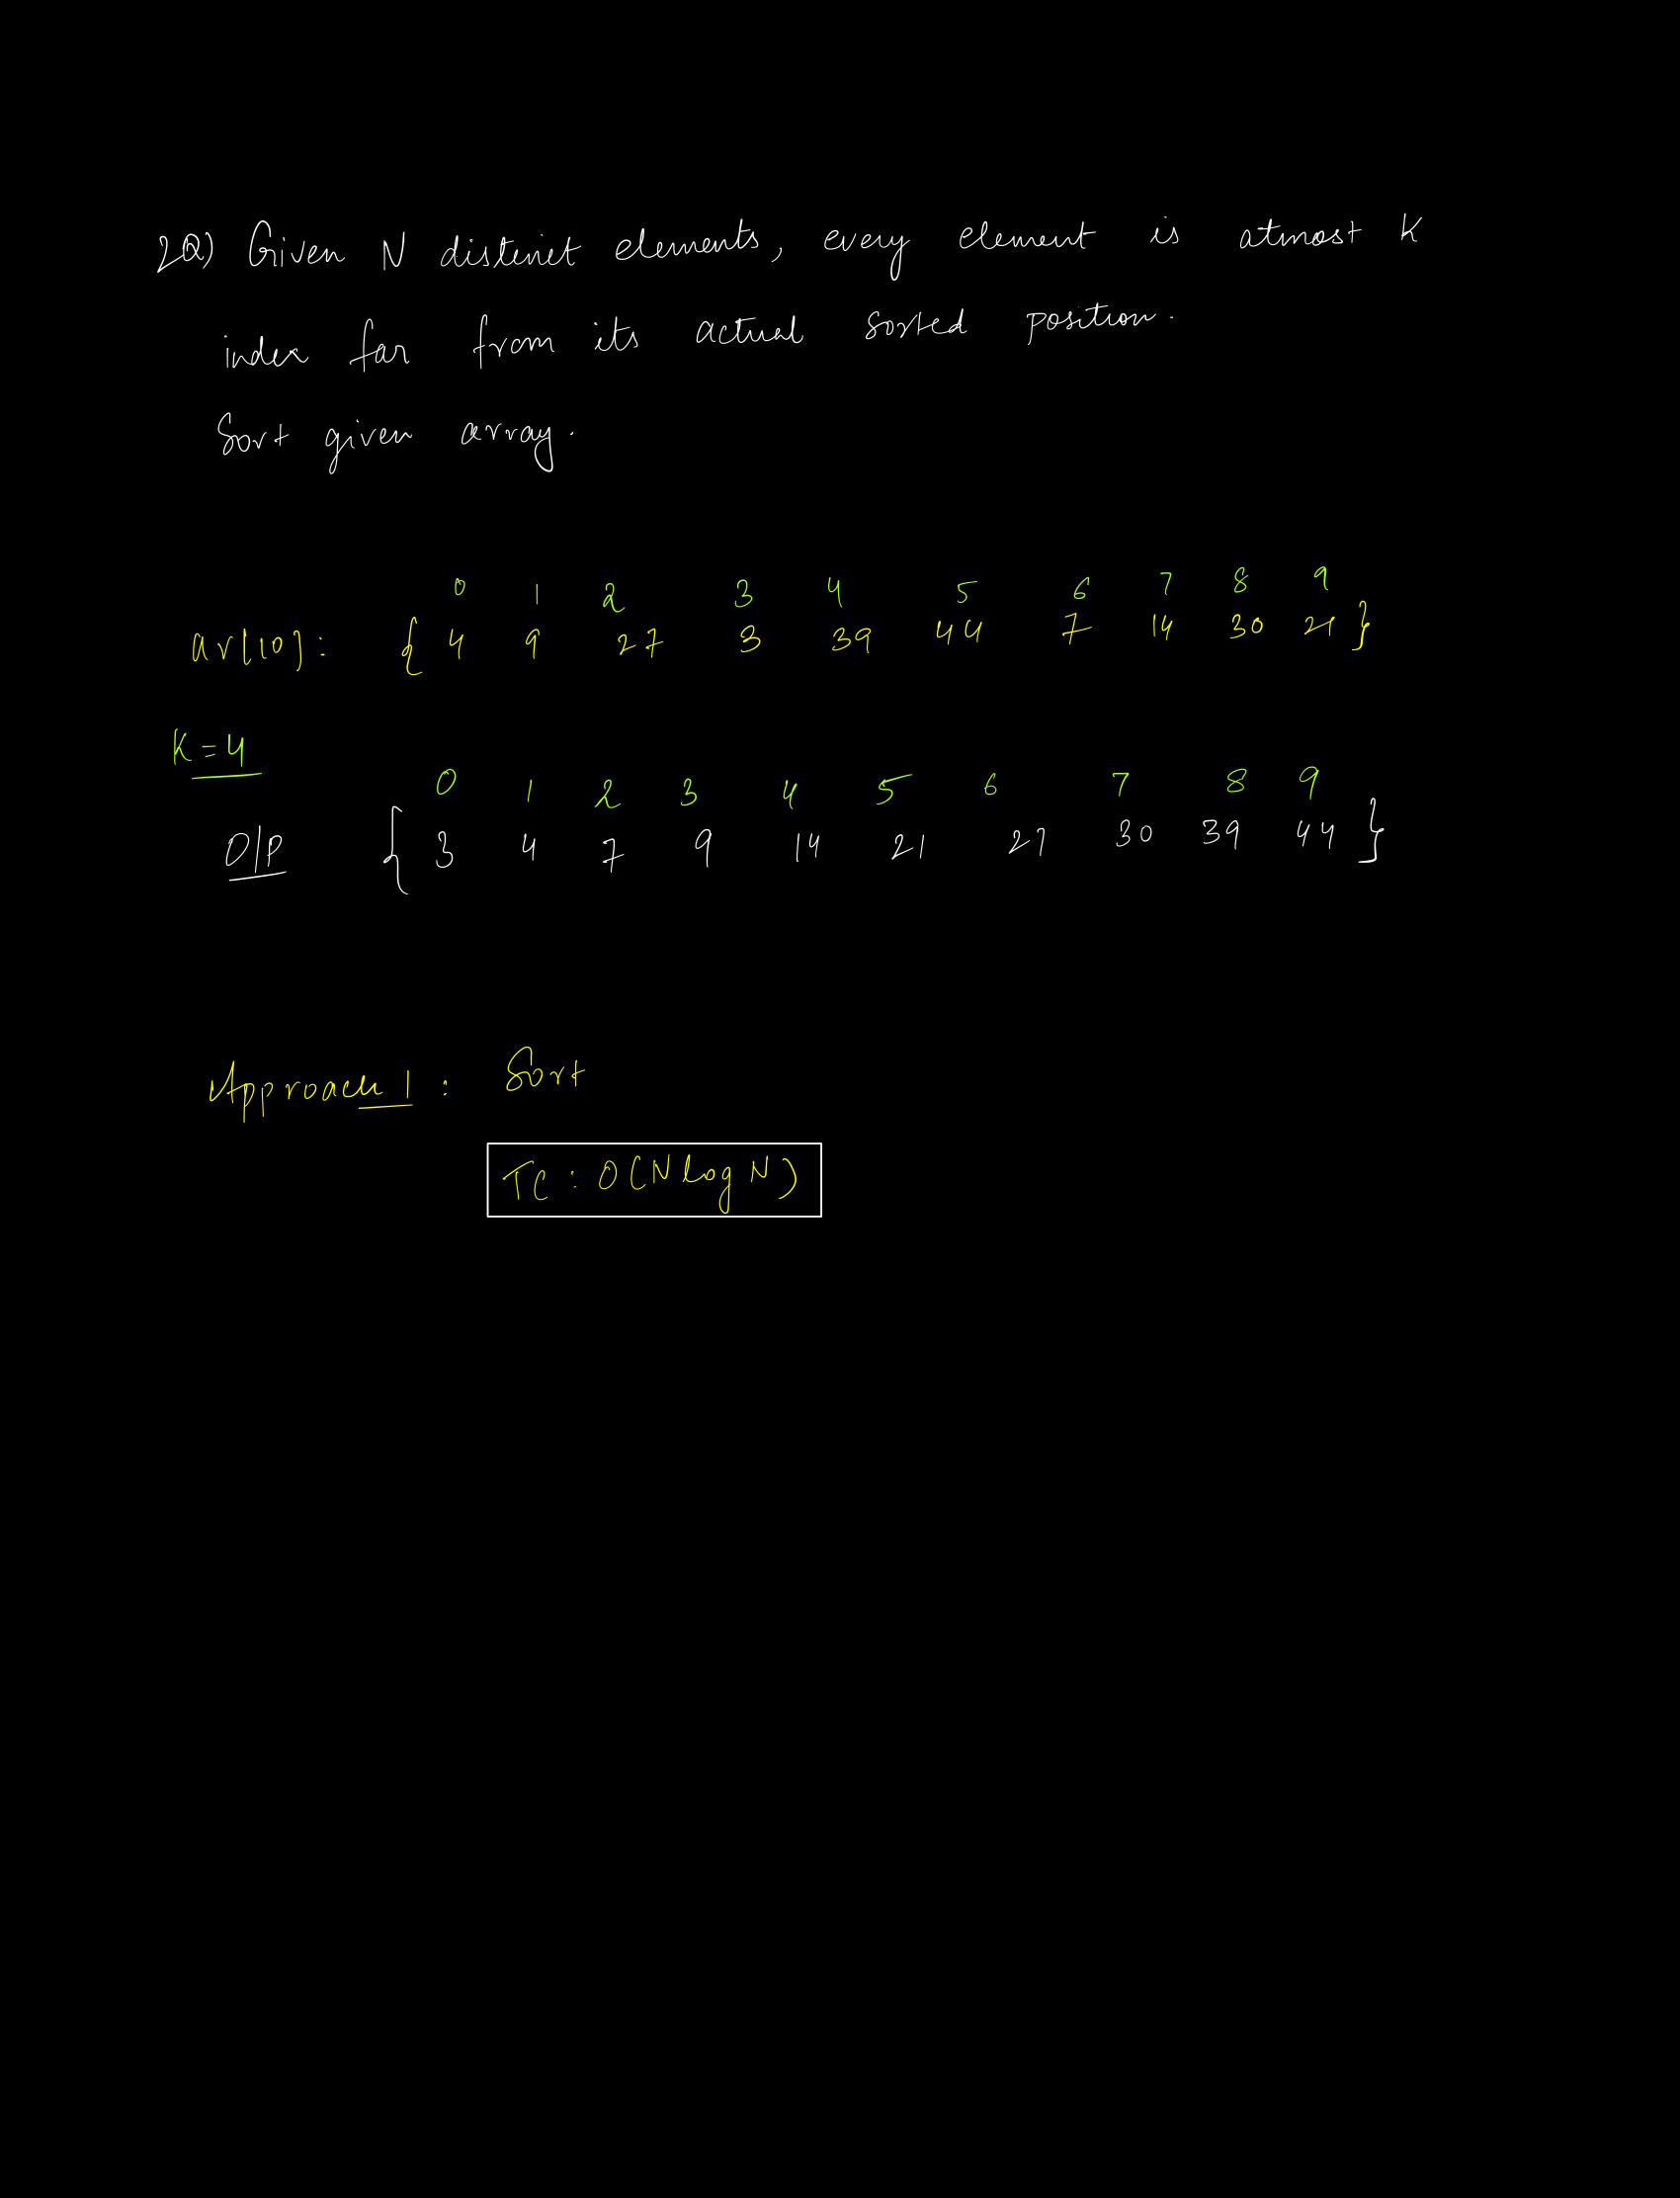 2Q) Given N distinct elements, every element is atmost K
index far from its actual sorted position.
Sort given array.
0 1 2 3 4 5 6 7 8 9
ar[10]: { 4 9 27 3 39 44 7 14 30 21 }
K=4
0 1 2 3 4 5 6 7 8 9
O/P { 3 4 7 9 14 21 27 30 39 44 }
Approach 1 : Sort
TC : O(N log N)